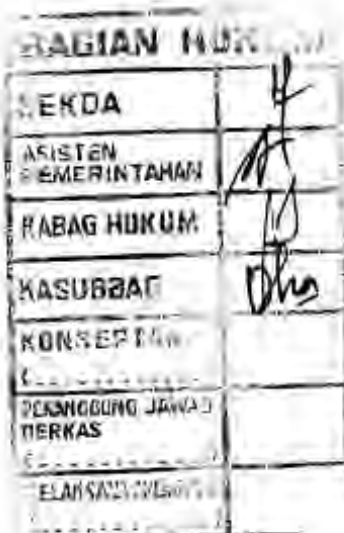 BAGIAN HUKUM
SEKDA
ASISTEN
PEMERINTAHAN
KABAG HUKUM
KASUBBAG
KONSEPTOR
PENANGGUNG JAWAB
BERKAS